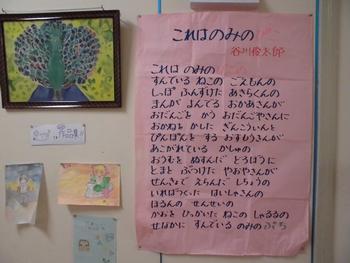 これはのみの
谷川俊太郎
これは のみの
すんでいる ねこの ごえもんの
しっぽ ふんずけた あきらくんの
まんが よんでる おかあさんが
おだんごを かう おだんごやさんに
おかねを かした ぎんこういんを
ぴんぽんを する おすもうさんが
あこがれている かしゅの
おうむを ぬすんだ どろぼうに
とまと ぶっつけた やおやさんが
せんきょで えらんだ しちょうの
いればつくった はいしゃさんの
ほるんの せんせいの
かおを ひっかいた ねこの しゃるるの
せなかに すんでいる のみの ぴち